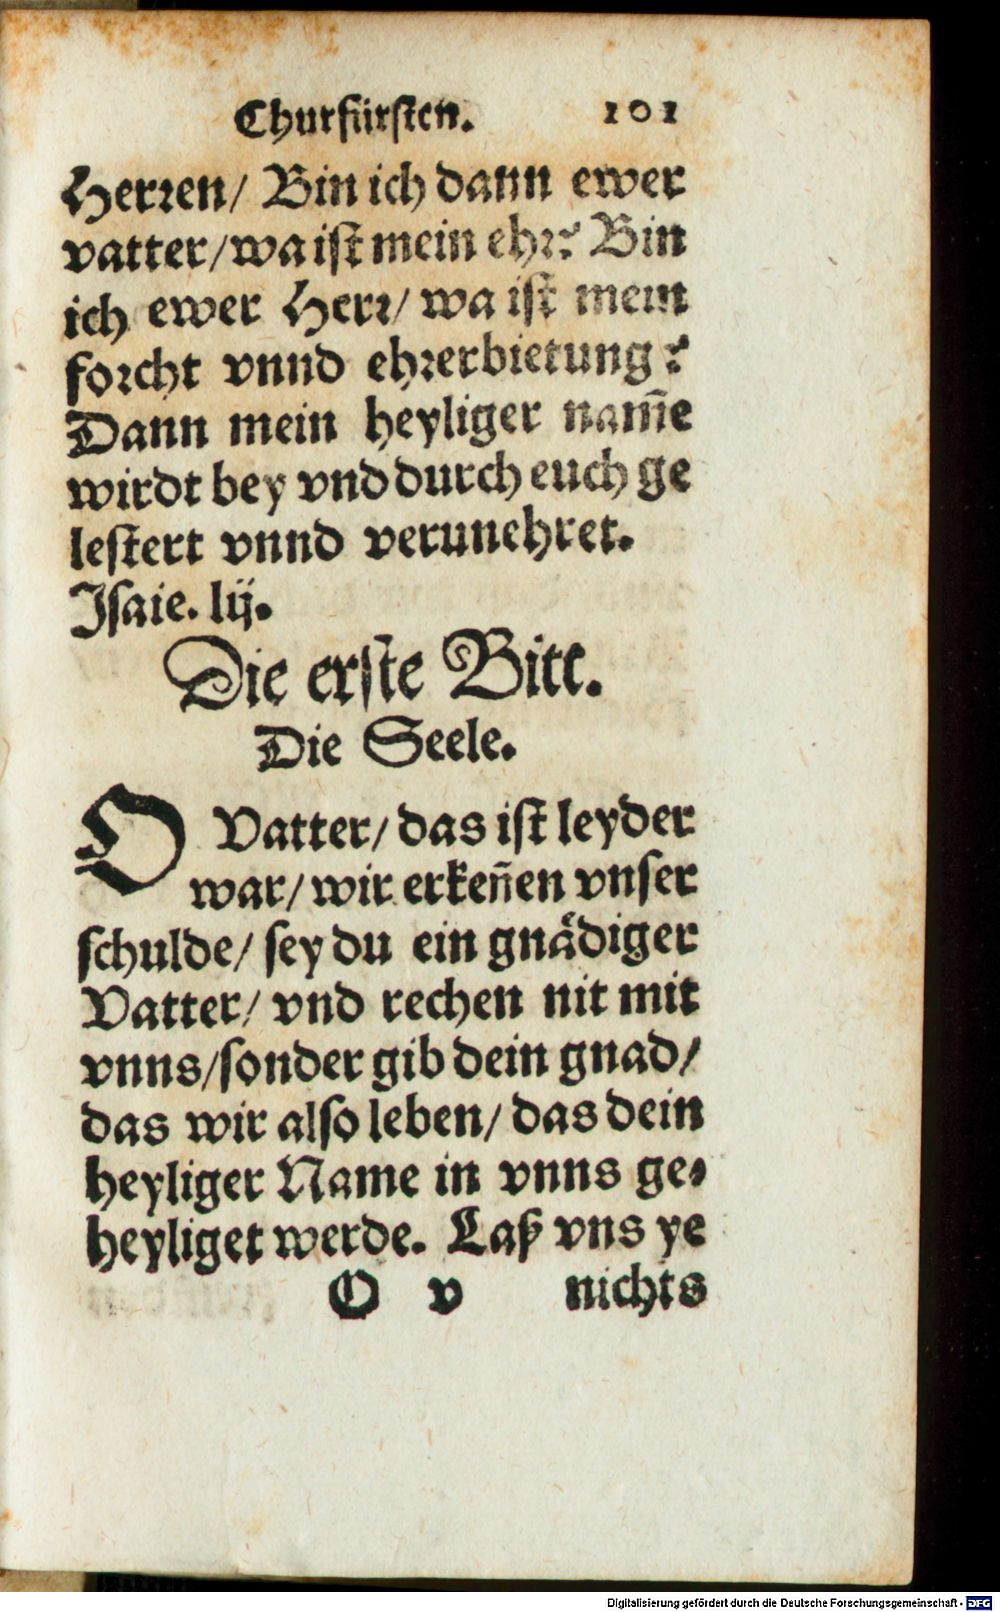 Churfürsten. 101
Herren/ Bin ich dann ewer
vatter/ wa ist mein ehr? Bin
ich ewer Herr/ wa ist mein
forcht vnnd ehrerbietung?
Dann mein heyliger nam̃e
wirdt bey vnd durch euch ge
lestert vnnd verunehret.
Isaie. lij.
Die erste Bitt.
Die Seele.
O Vatter/ das ist leyder
war/ wir erkeñen vnser
schulde/ sey du ein gnådiger
Vatter/ vnd rechen nit mit
vnns/ sonder gib dein gnad/
das wir also leben/ das dein
heyliger Name in vnns ge-
heyliget werde. Laß vns ye
O v nichts
Digitalisierung gefördert durch die Deutsche Forschungsgemeinschaft - DFG